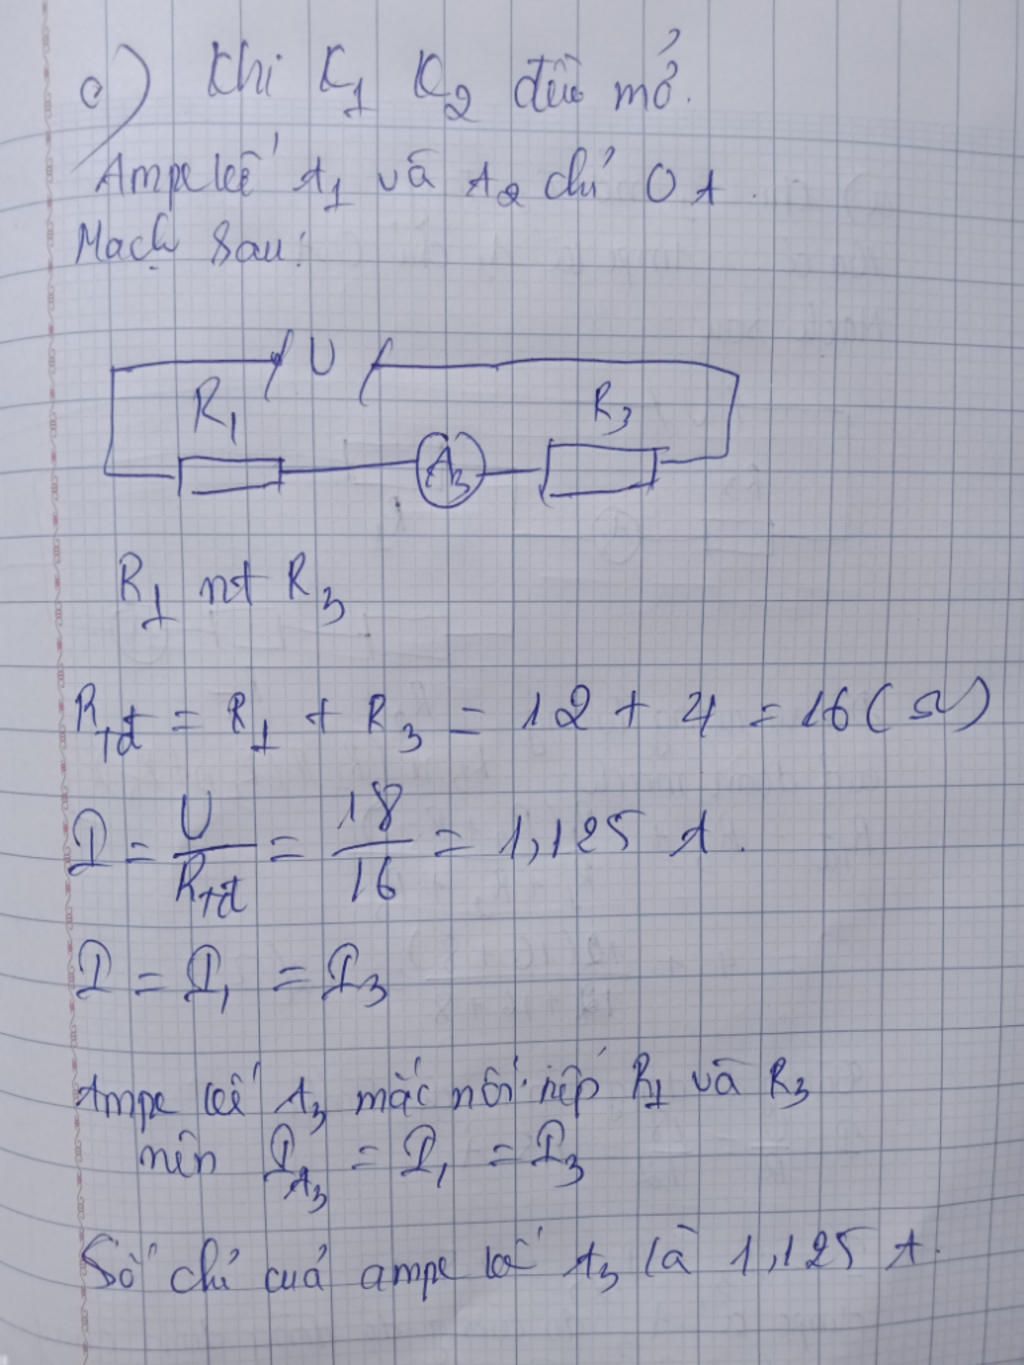 c) Khi K1 K2 đều mở.
Ampe kế A1 và A2 chỉ 0 A.
Mạch sau:
U
R1
R3
A3
R1 nt R3
Rtđ = R1 + R3 = 12 + 4 = 16 (Ω)
I = U/Rtđ = 18/16 = 1,125 A.
I = I1 = I3
Ampe kế A3 mắc nối tiếp R1 và R3
nên IA3 = I1 = I3
Số chỉ của ampe kế A3 là 1,125 A.